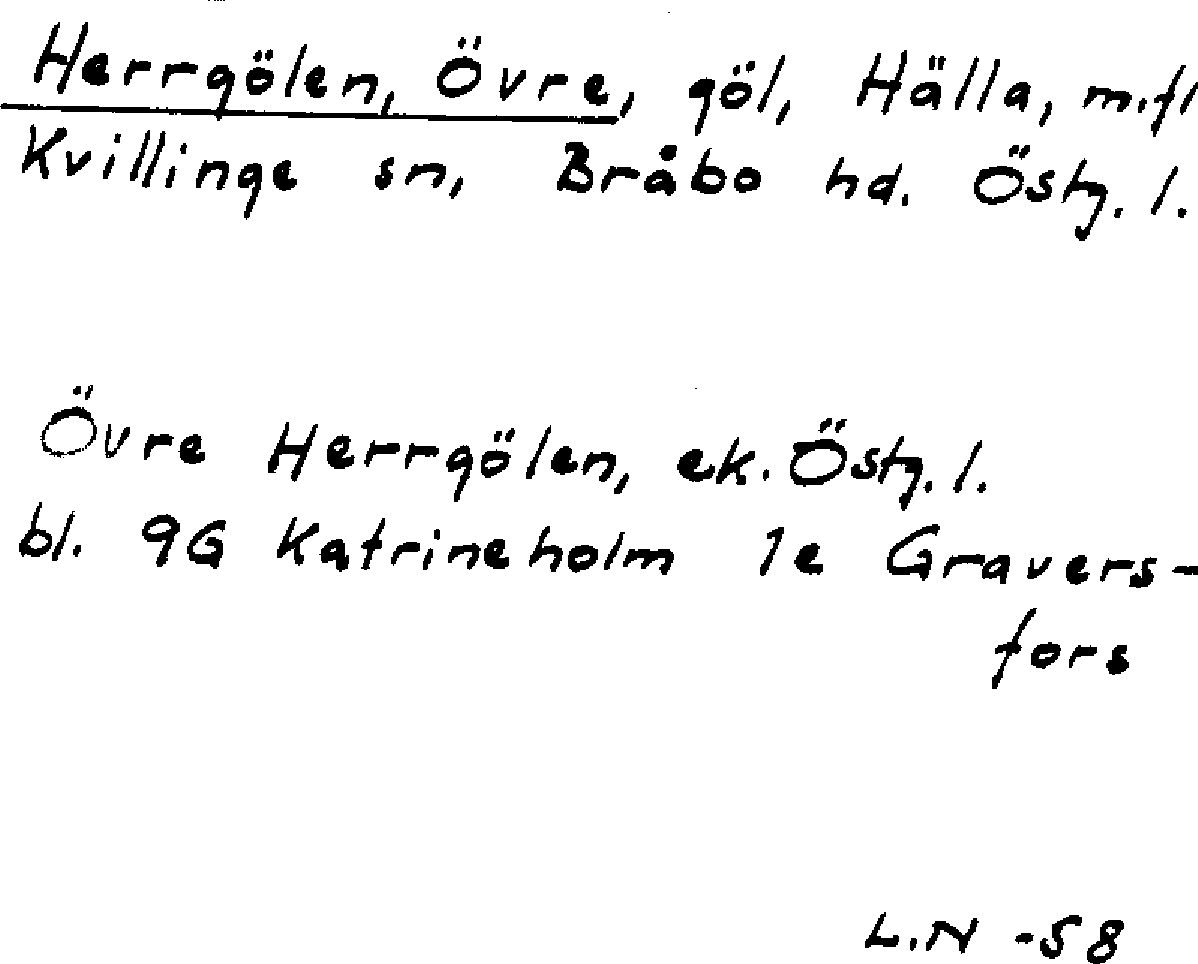 Herrgölen, Övre, göl, Hälla, m.fl
Kvillinge sn, Bråbo hd. Östg. l.
Övre Herrgölen, ek. Östg. l.
bl. 9G Katrineholm 1e Gravers-
fors
L.N -58